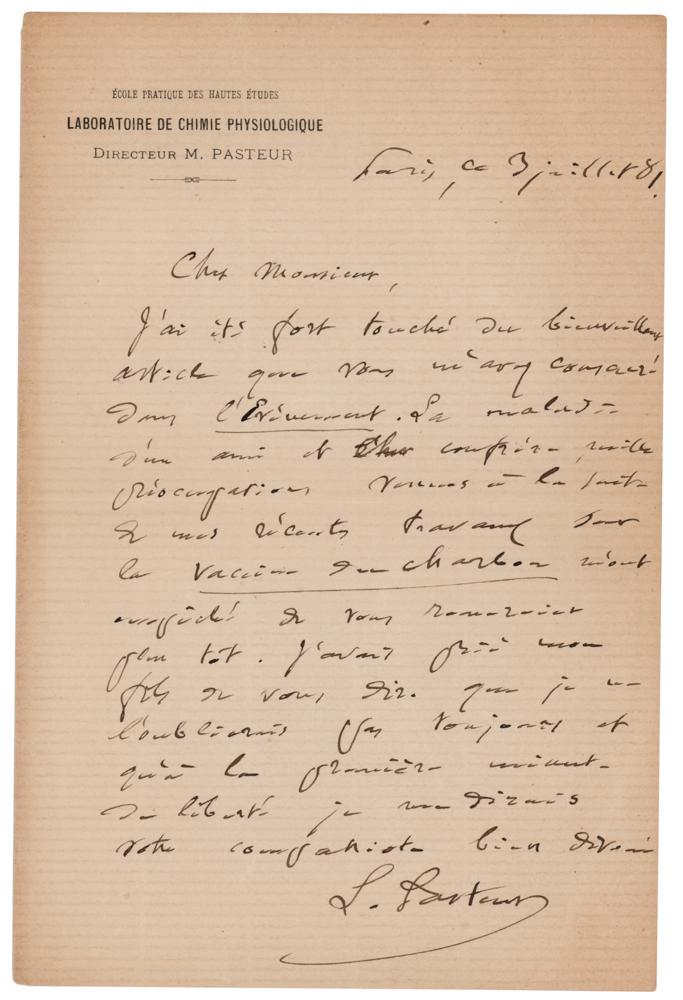 ÉCOLE PRATIQUE DES HAUTES ÉTUDES
LABORATOIRE DE CHIMIE PHYSIOLOGIQUE
DIRECTEUR M. PASTEUR
Paris, ce 3 juillet 81.
Cher Monsieur,
J'ai été fort touché du bienveillant
article que vous m'avez consacré
dans l'Evènement. La maladie
d'un ami et cher confrère, mille
préoccupations venues à la suite
de mes récents travaux sur
le vaccin du charbon m'ont
empêché de vous remercier
plus tôt. J'avais prié mon
fils de vous dire que je ne
l'oublierais pas toujours et
qu'à la première minute
de liberté je me dirais
votre compatriote bien dévoué
L. Pasteur